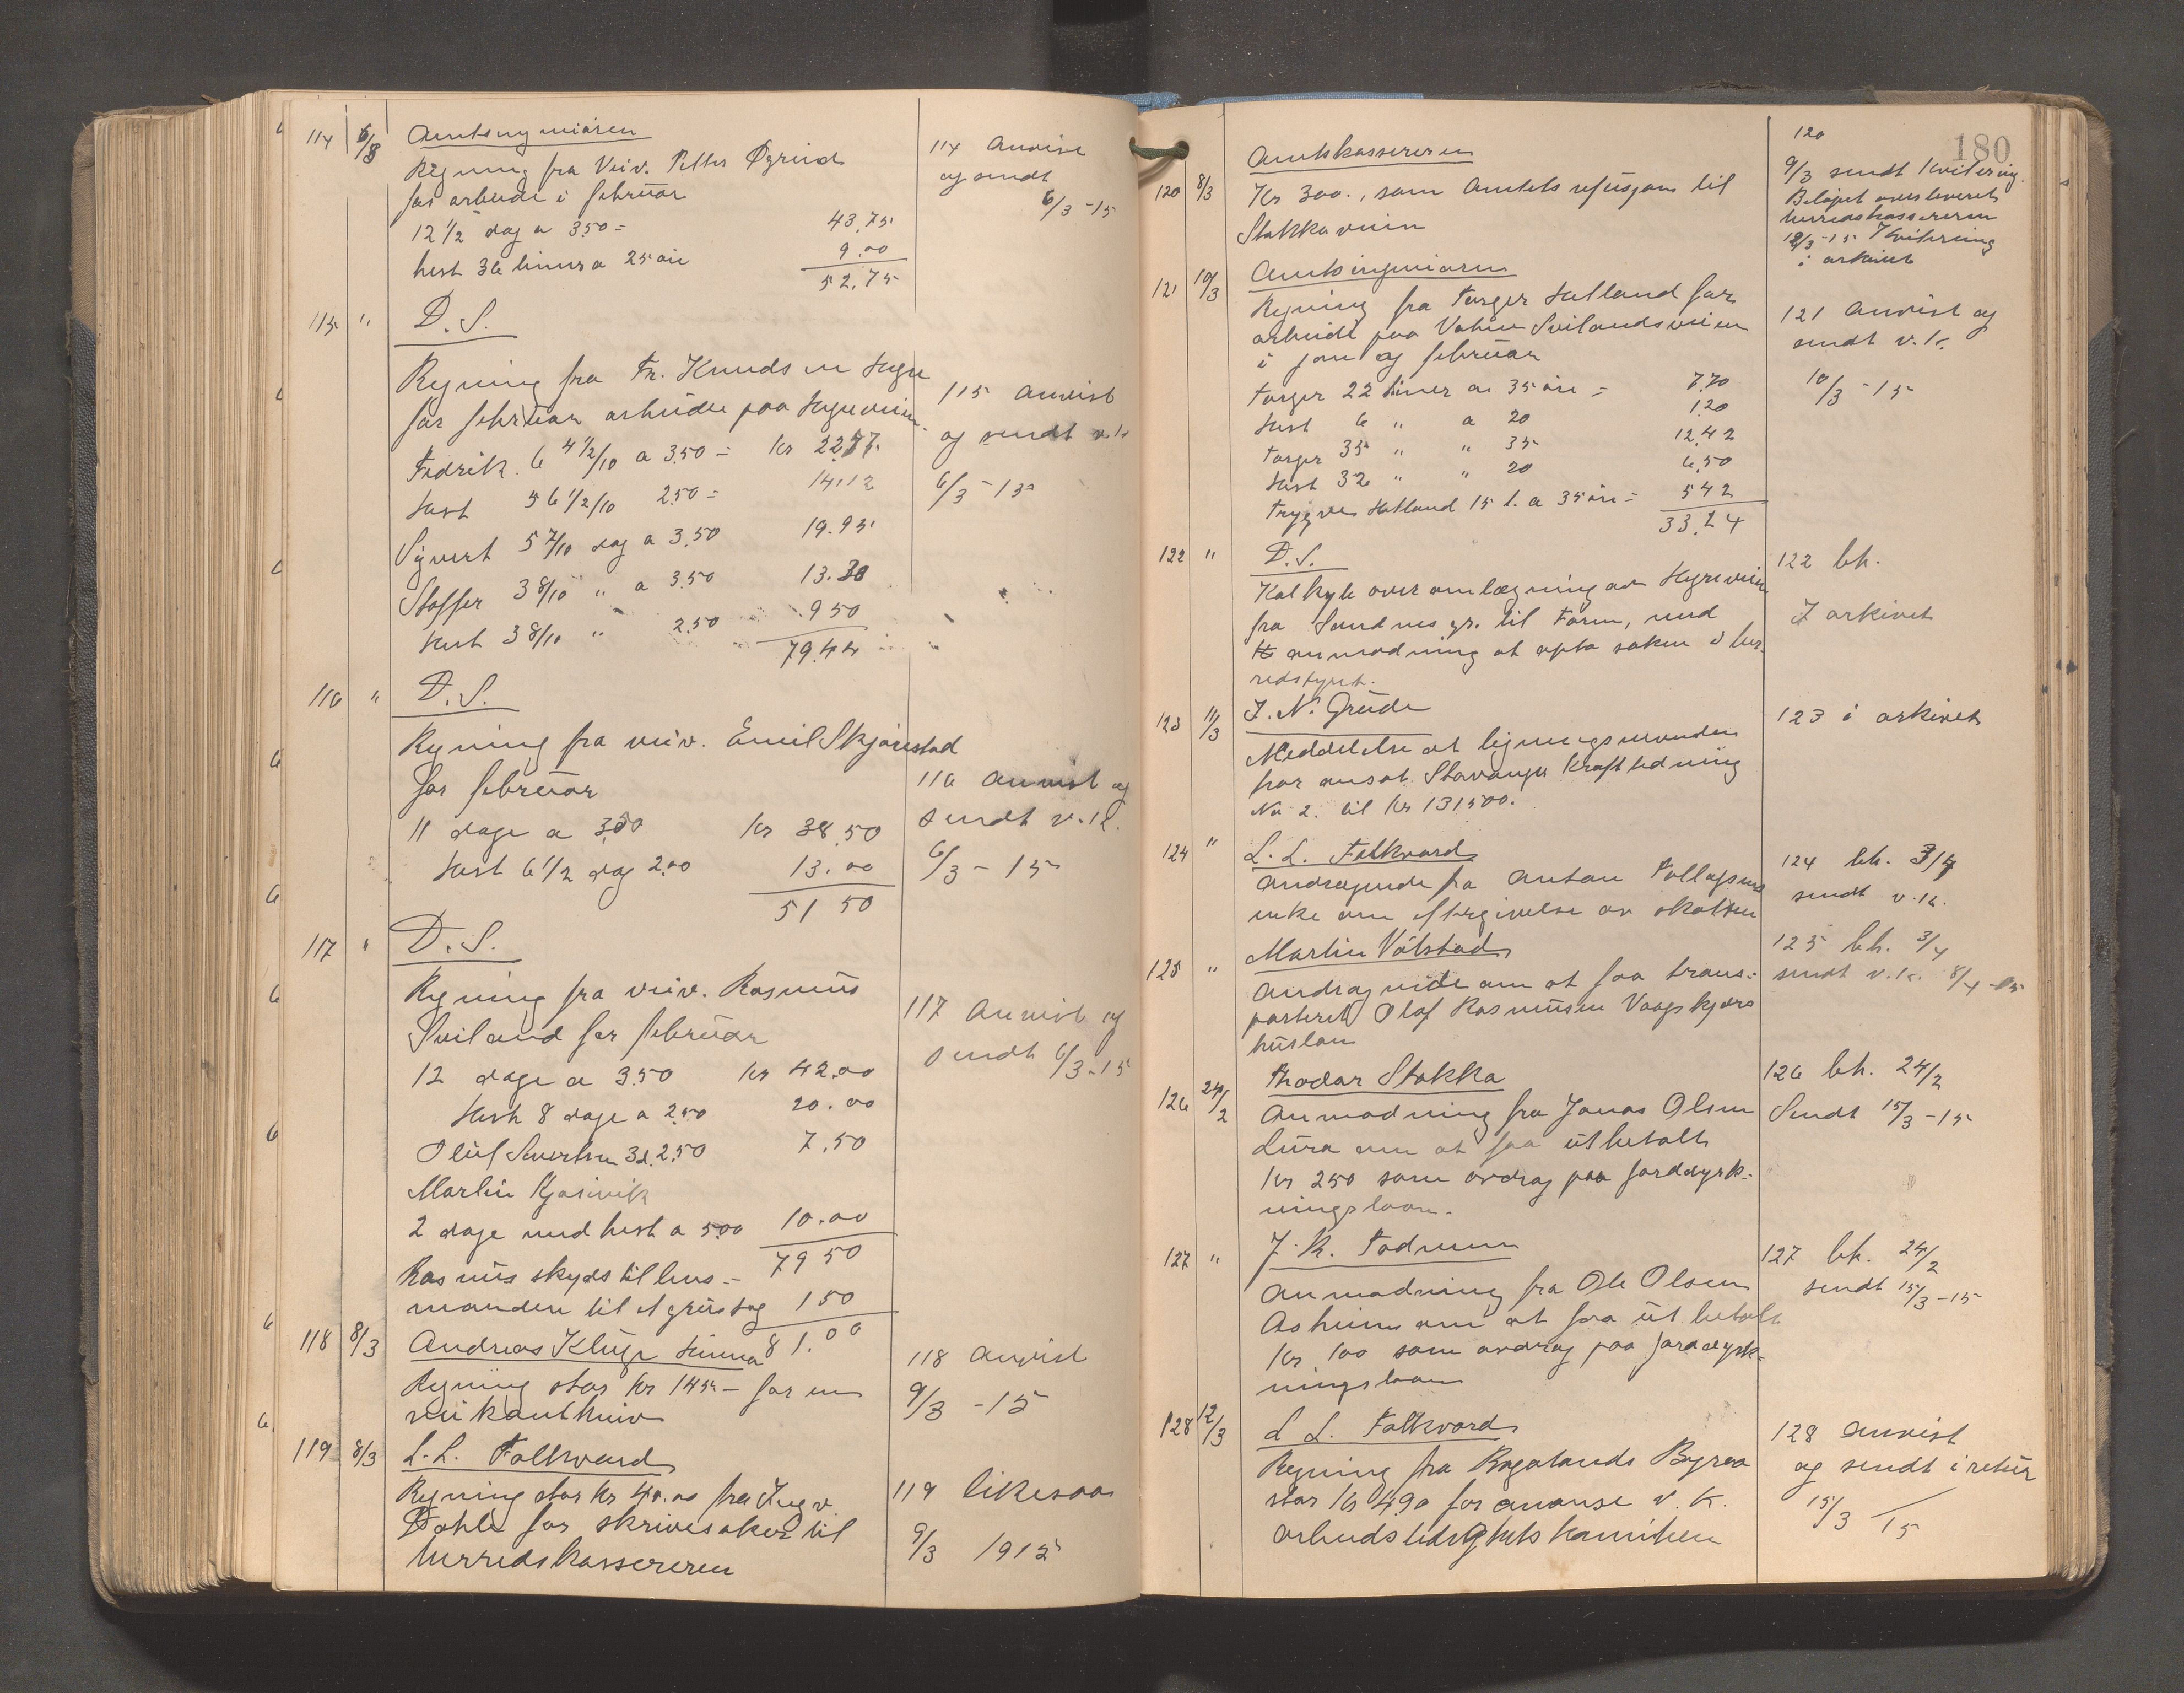 114 6/3 Amtsingeniøren
Regning fra Veiv. Petter Øgreid
for arbeide i februar
12 1/2 dag a 3.50 = 43.75
hest 36 timer a 25 øre 9.00
52.75
114 Anvist
og sendt
6/3 - 15
115 " D. S.
Regning fra Fr. Knudsen Hogre
for februar arbeide paa Hogreveien
Fredrik. 6 4 1/2/10 a 3.50 = kr 22.57
Hest 5 6 1/2/10 2.50 = 14.12
Sivert 5 7/10 dag a 3.50 19.95
Stoffer 3 8/10 " a 3.50 13.30
Hest 3 8/10 " 2.50 9 50
79.44
115 anvist
og sendt v.k
6/3 - 15
116 " D. S.
Regning fra veiv. Emil Skjørestad
for februar
11 dage a 3.50 kr 38.50
Hest 6 1/2 dag 2.00 13.00
51 50
116 anvist og
sendt v.k.
6/3 - 15
117 " D. S.
Regning fra veiv. Rasmus
Sviland for februar
12 dage a 3.50 kr 42.00
Hest 8 dage a 2.50 20.00
Oluf Sivertsen 3 d. 2.50 7.50
Martin Kjosavik
2 dage med hest a 5.00 10.00
79 50
Rasmus skyds til lens-
manden til et grustag 1 50
81.00
117 Anvist og
sendt 6/3 - 15
118 8/3 Andreas Kluge Hinna
Regning stor kr 145 - for en
veikanthøiv
118 Anvist
9/3 - 15
119 8/3 L. L. Folkvord
Regning stor kr 40.00 fra Ingv.
Dahle for skrivesaker til
herredskassereren
119 likesaa
9/3 1915
180
Amtskassereren
120 8/3 Kr 300., som Amtets refusjon til
Stokkaveien
120
9/3 sendt Kvitering.
Beløpet overleveret
herredskassereren
12/3 - 15 Kvitering
i arkivet
121 10/3 Amtsingeniøren
Regning fra Torger Hetland for
arbeide paa Vatne Svilandsveien
i jan og februar
Torger 22 timer a 35 øre = 7.70
Hest 6 " a 20 1.20
Torger 35 " " 35 12.42
Hest 32 " " 20 6.50
Trygve Hetland 15 t. a 35 øre = 5 42
33.24
121 Anvist og
sendt v.k.
10/3 - 15
122 " D. S.
Kalkyle over omlægning av Hogreveien
fra Sandnes gr. til Foren, med
anmodning at opta saken i her-
redstyret.
122 bh.
I arkivet
123 11/3 J. N. Grude
Meddelelse at ligningsnevnden
har ansat Stavanger Kraftledning
No 2. til kr 131500.
123 i arkivet
124 " L. L. Folkvord
Andragende fra Anton Tollefsens
enke om eftergivelse av skatten
124 bh. 3/4
sendt v.k.
125 " Martin Vølstad
Andragende om at faa trans-
porteret Olaf Rasmusen Vaagskjærs
huslaan
125 bh. 3/4
sendt v.k. 8/4 - 15
126 24/2 Thodar Stokka
Anmodning fra Jonas Olsen
Lura om at faa utbetalt
kr 250 som avdrag paa jorddyrk-
ningslaan.
126 bh. 24/2
Sendt 15/3 - 15
127 " J. R. Todnem
Anmodning fra Ole Olsen
Asheim om at faa utbetalt
kr 100 som avdrag paa jorddyrk-
ningslaan
127 bh. 24/2
sendt 15/3 - 15
128 12/3 L L. Folkvord
Regning fra Rogalands Byraa
stor kr 4.90 for anonse v. k.
arbeidsledighets komiteen
128 anvist
og sendt i retur
15/3 15